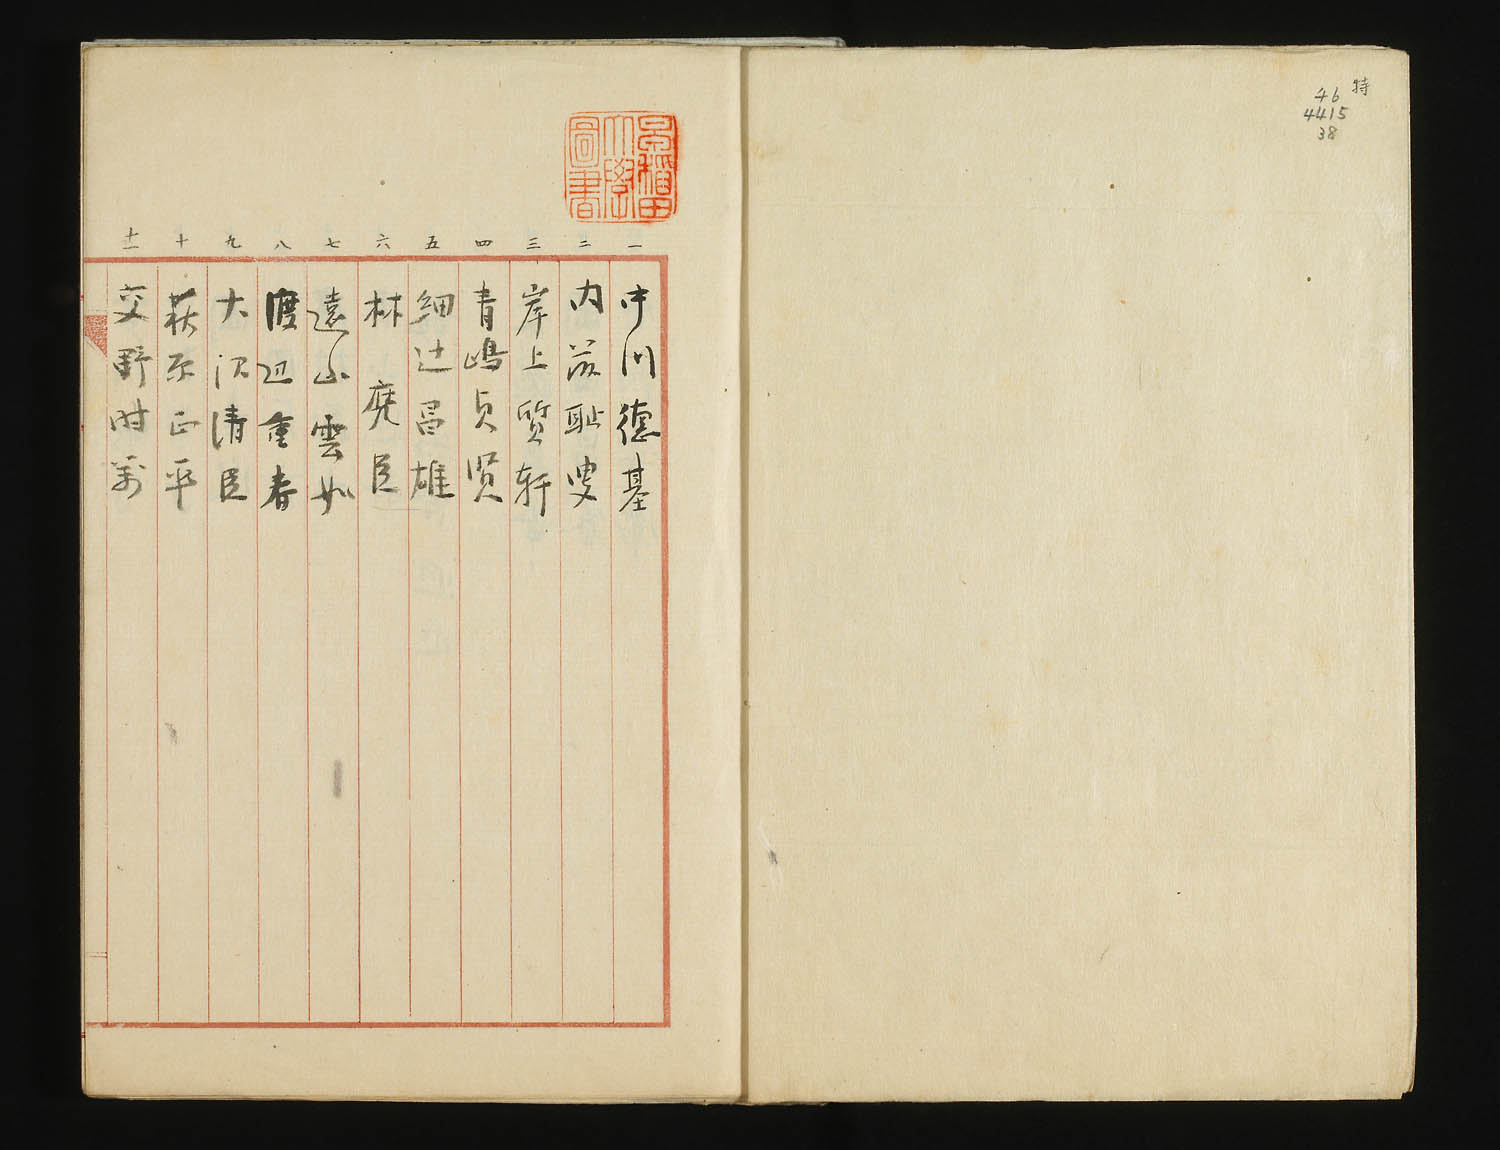 特
46
4415
38
早稲田
大學
圖書
一 中川德基
二 内藤耻叟
三 岸上質軒
四 青嶋貞賢
五 細辻昌雄
六 林甕臣
七 遠山雲如
八 渡辺重春
九 大沢清臣
十 萩原正平
十一 交野时萬